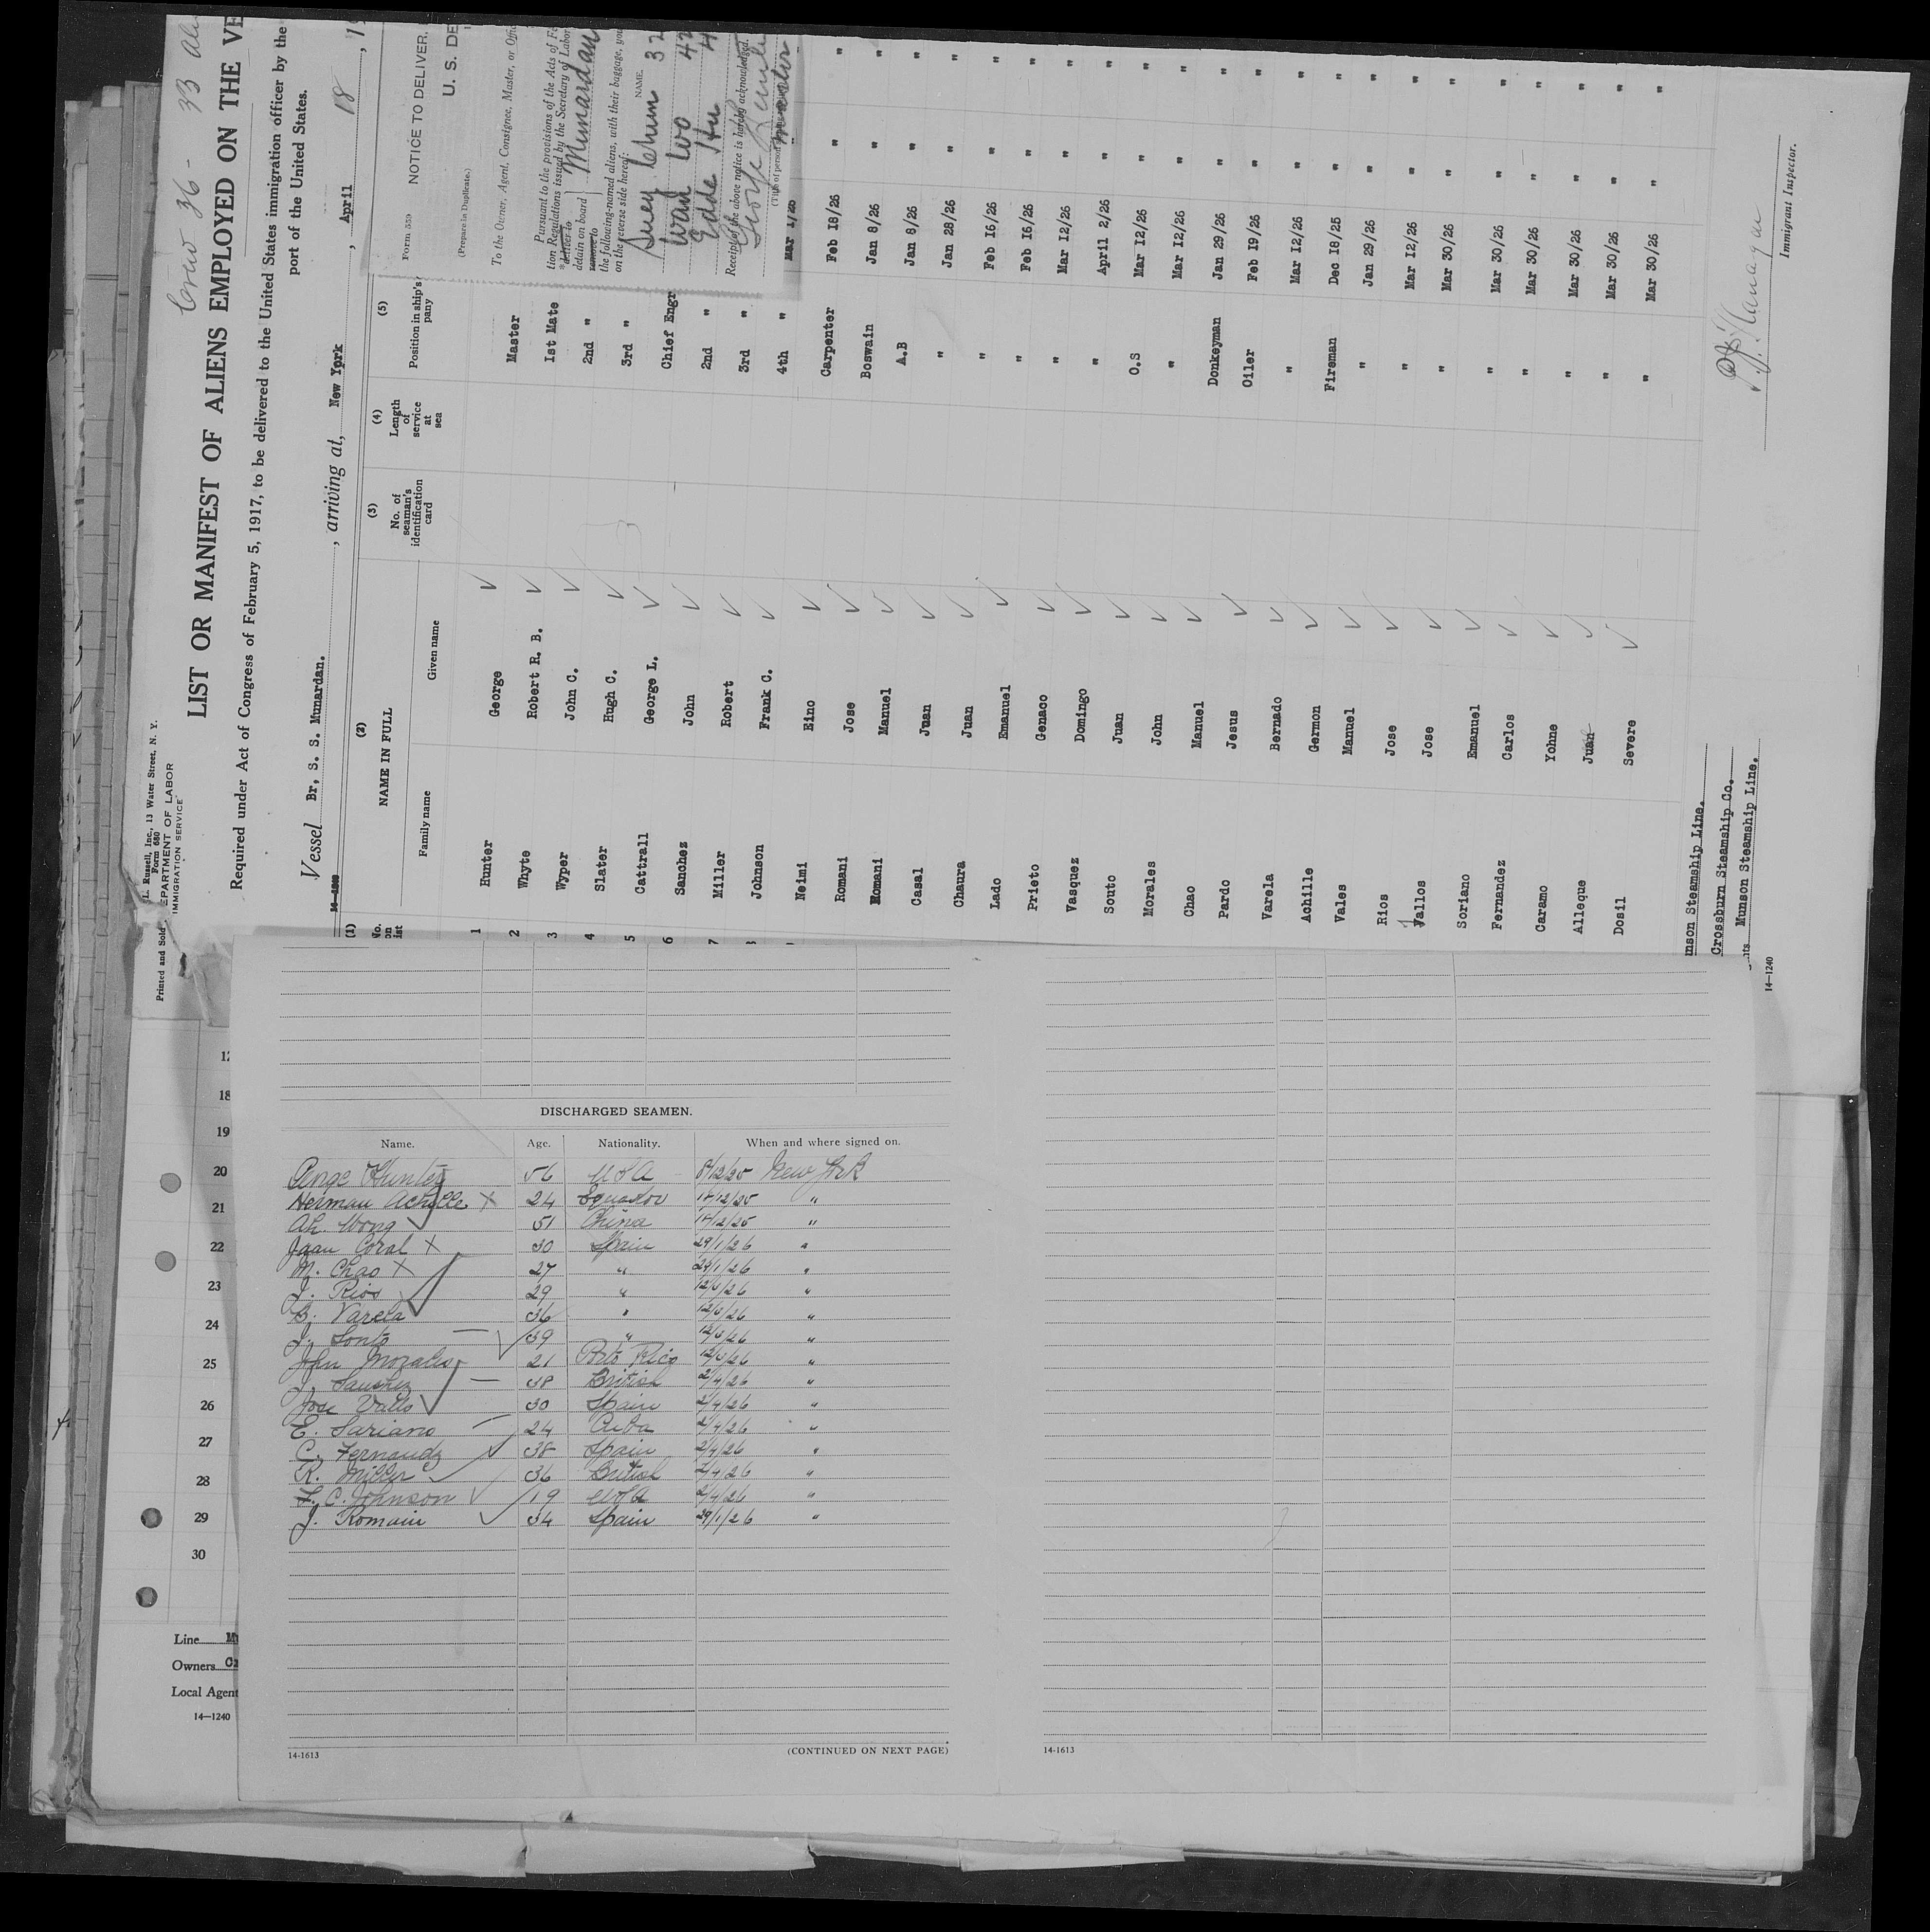 Crew 36 - 33
L. Russell, Inc., 13 Water Street, N. Y.
Form 680
Printed and Sold
DEPARTMENT OF LABOR
IMMIGRATION SERVICE
LIST OR MANIFEST OF ALIENS EMPLOYED ON THE VE
Required under Act of Congress of February 5, 1917, to be delivered to the United States immigration officer by the
port of the United States.
Vessel Br, S. S. Munardan. , arriving at, New York , April 18 , 1
(1) (2) (3) (4) (5)
No. on list NAME IN FULL No. of seaman's identification card Length of service at sea Position in ship's pany
Family name Given name
1 Hunter George Master
2 Whyte Robert R. B. 1st Mate
3 Wyper John C. 2nd "
4 Slater Hugh C. 3rd "
5 Cattrall George L. Chief Engr
6 Sanchez John 2nd "
7 Miller Robert 3rd "
Johnson Frank C. 4th " Mar 1/26
Neimi Eino Carpenter Feb 18/26 " "
Romani Jose Boswain Jan 8/26 " "
Romani Manuel A.B Jan 8/26 " "
Casal Juan " Jan 28/26 " "
Chaura Juan " Feb 16/26 " "
Lado Emanuel " Feb 16/26 " "
Prieto Genaco " Mar 12/26 " "
Vasquez Domingo " April 2/26 " "
Souto Juan O.S Mar 12/26 " "
Morales John " Mar 12/26 " "
Chao Manuel Donkeyman Jan 29/26 " "
Pardo Jesus Oiler Feb 19/26 " "
Varela Bernado " Mar 12/26 " "
Achille Germon Fireman Dec 18/25 " "
Vales Manuel " Jan 29/26 " "
Rios Jose " Mar 12/26 " "
Vallos Jose " Mar 30/26 " "
Soriano Emanuel " Mar 30/26 " "
Fernandez Carlos " Mar 30/26 " "
Caramo Yohne " Mar 30/26 " "
Alleque Juan " Mar 30/26 " "
Dosil Severe " Mar 30/26 " "
nson Steamship Line.
Crossburn Steamship Co.
Munson Steamship Line.
14—1240
Immigrant Inspector.
Form 559
(Prepare in Duplicate.)
NOTICE TO DELIVER,
U. S. DE
To the Owner, Agent, Consignee, Master, or Offic
Pursuant to the provisions of the Acts of Fe
tion Regulations issued by the Secretary of Labor
deliver to
detain on board
remove to
Munardan
the following-named aliens, with their baggage, you
on the reverse side hereof:
NAME.
Suey Chum 32
Wah Wo 42
Edde Hu 4
Receipt of the above notice is hereby acknowledged.
George Hunter
(Title of person
Master
DISCHARGED SEAMEN.
Name. Age. Nationality. When and where signed on.
George Hunter 56 USA 8/12/25 New York
Herman Achille X 24 Equador 18/12/25 "
Ah Wong 51 China 18/12/25 "
Juan Coral X 30 Spain 29/1/26 "
M. Chao X 27 " 29/1/26 "
J. Rios 29 " 12/3/26 "
B. Varela 36 " 12/3/26 "
J. Sonto 39 " 12/3/26 "
John Morales 21 Porto Rico 12/3/26 "
J. Sanchez 38 British 2/4/26 "
Jose Valls 30 Spain 2/4/26 "
E. Sariano 24 Cuba 2/4/26 "
C. Fernandz 38 Spain 2/4/26 "
R. Miller 36 British 2/4/26 "
F. C. Johnson 19 USA 2/4/26 "
J. Romain 34 Spain 29/1/26 "
14-1613 (CONTINUED ON NEXT PAGE)
14-1613
18
19
20
21
22
23
24
25
26
27
28
29
30
Line
Owners
Local Agent
14—1240